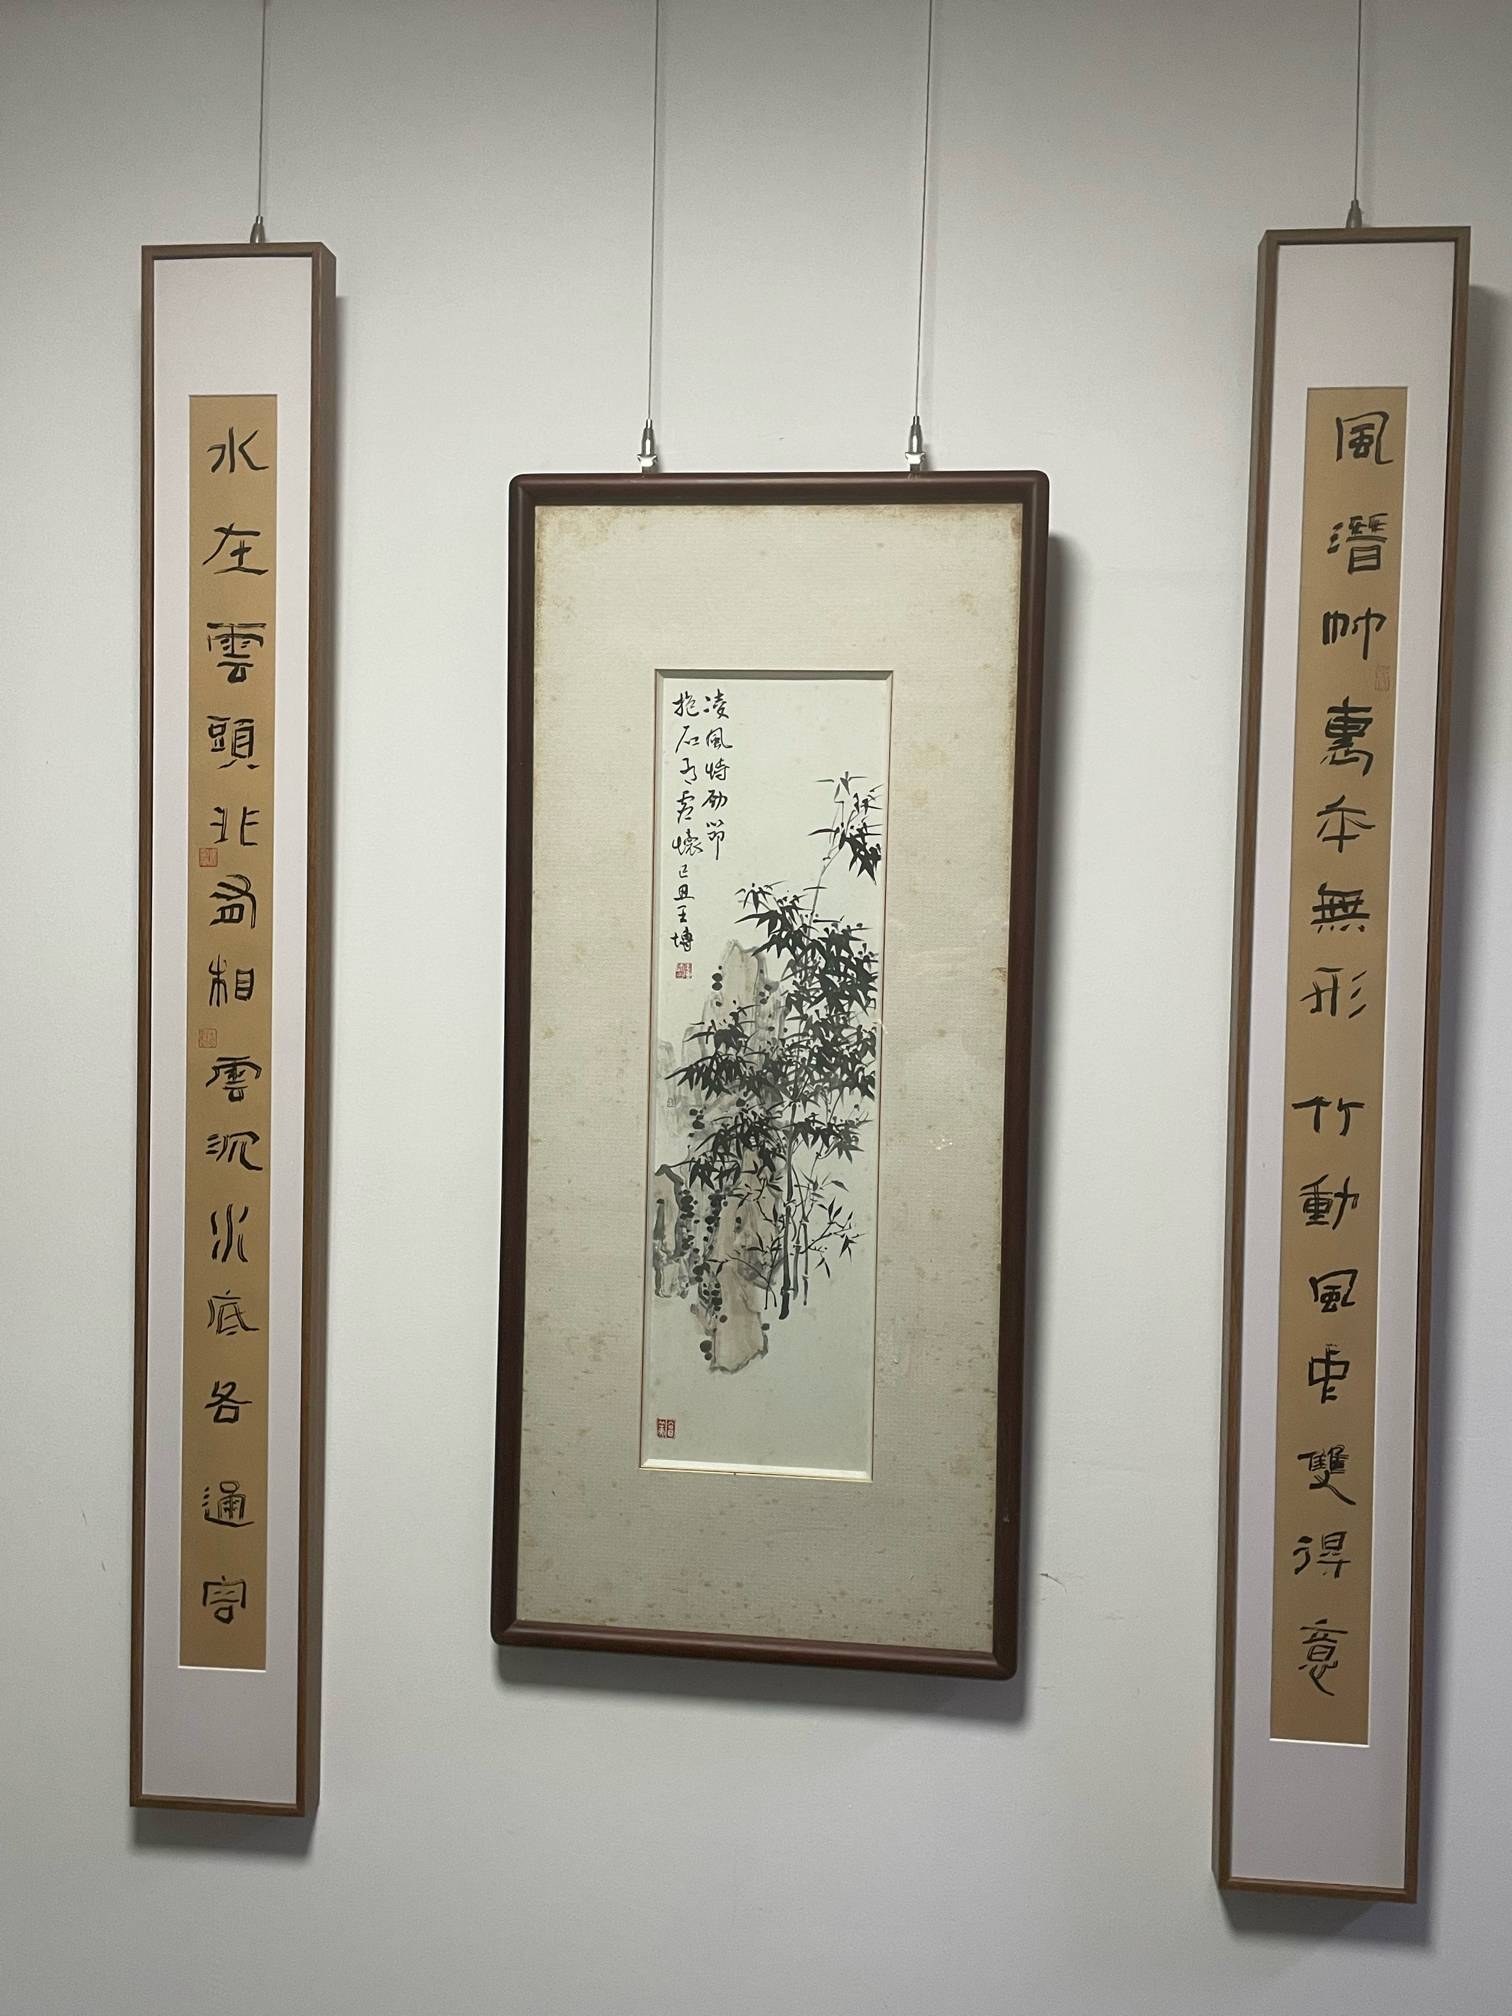 風潛竹裏本無形竹動風生雙得意
凌風恃勁節
抱石有虛懷己丑王博
水在雲頭非有相雲沉水底各通容